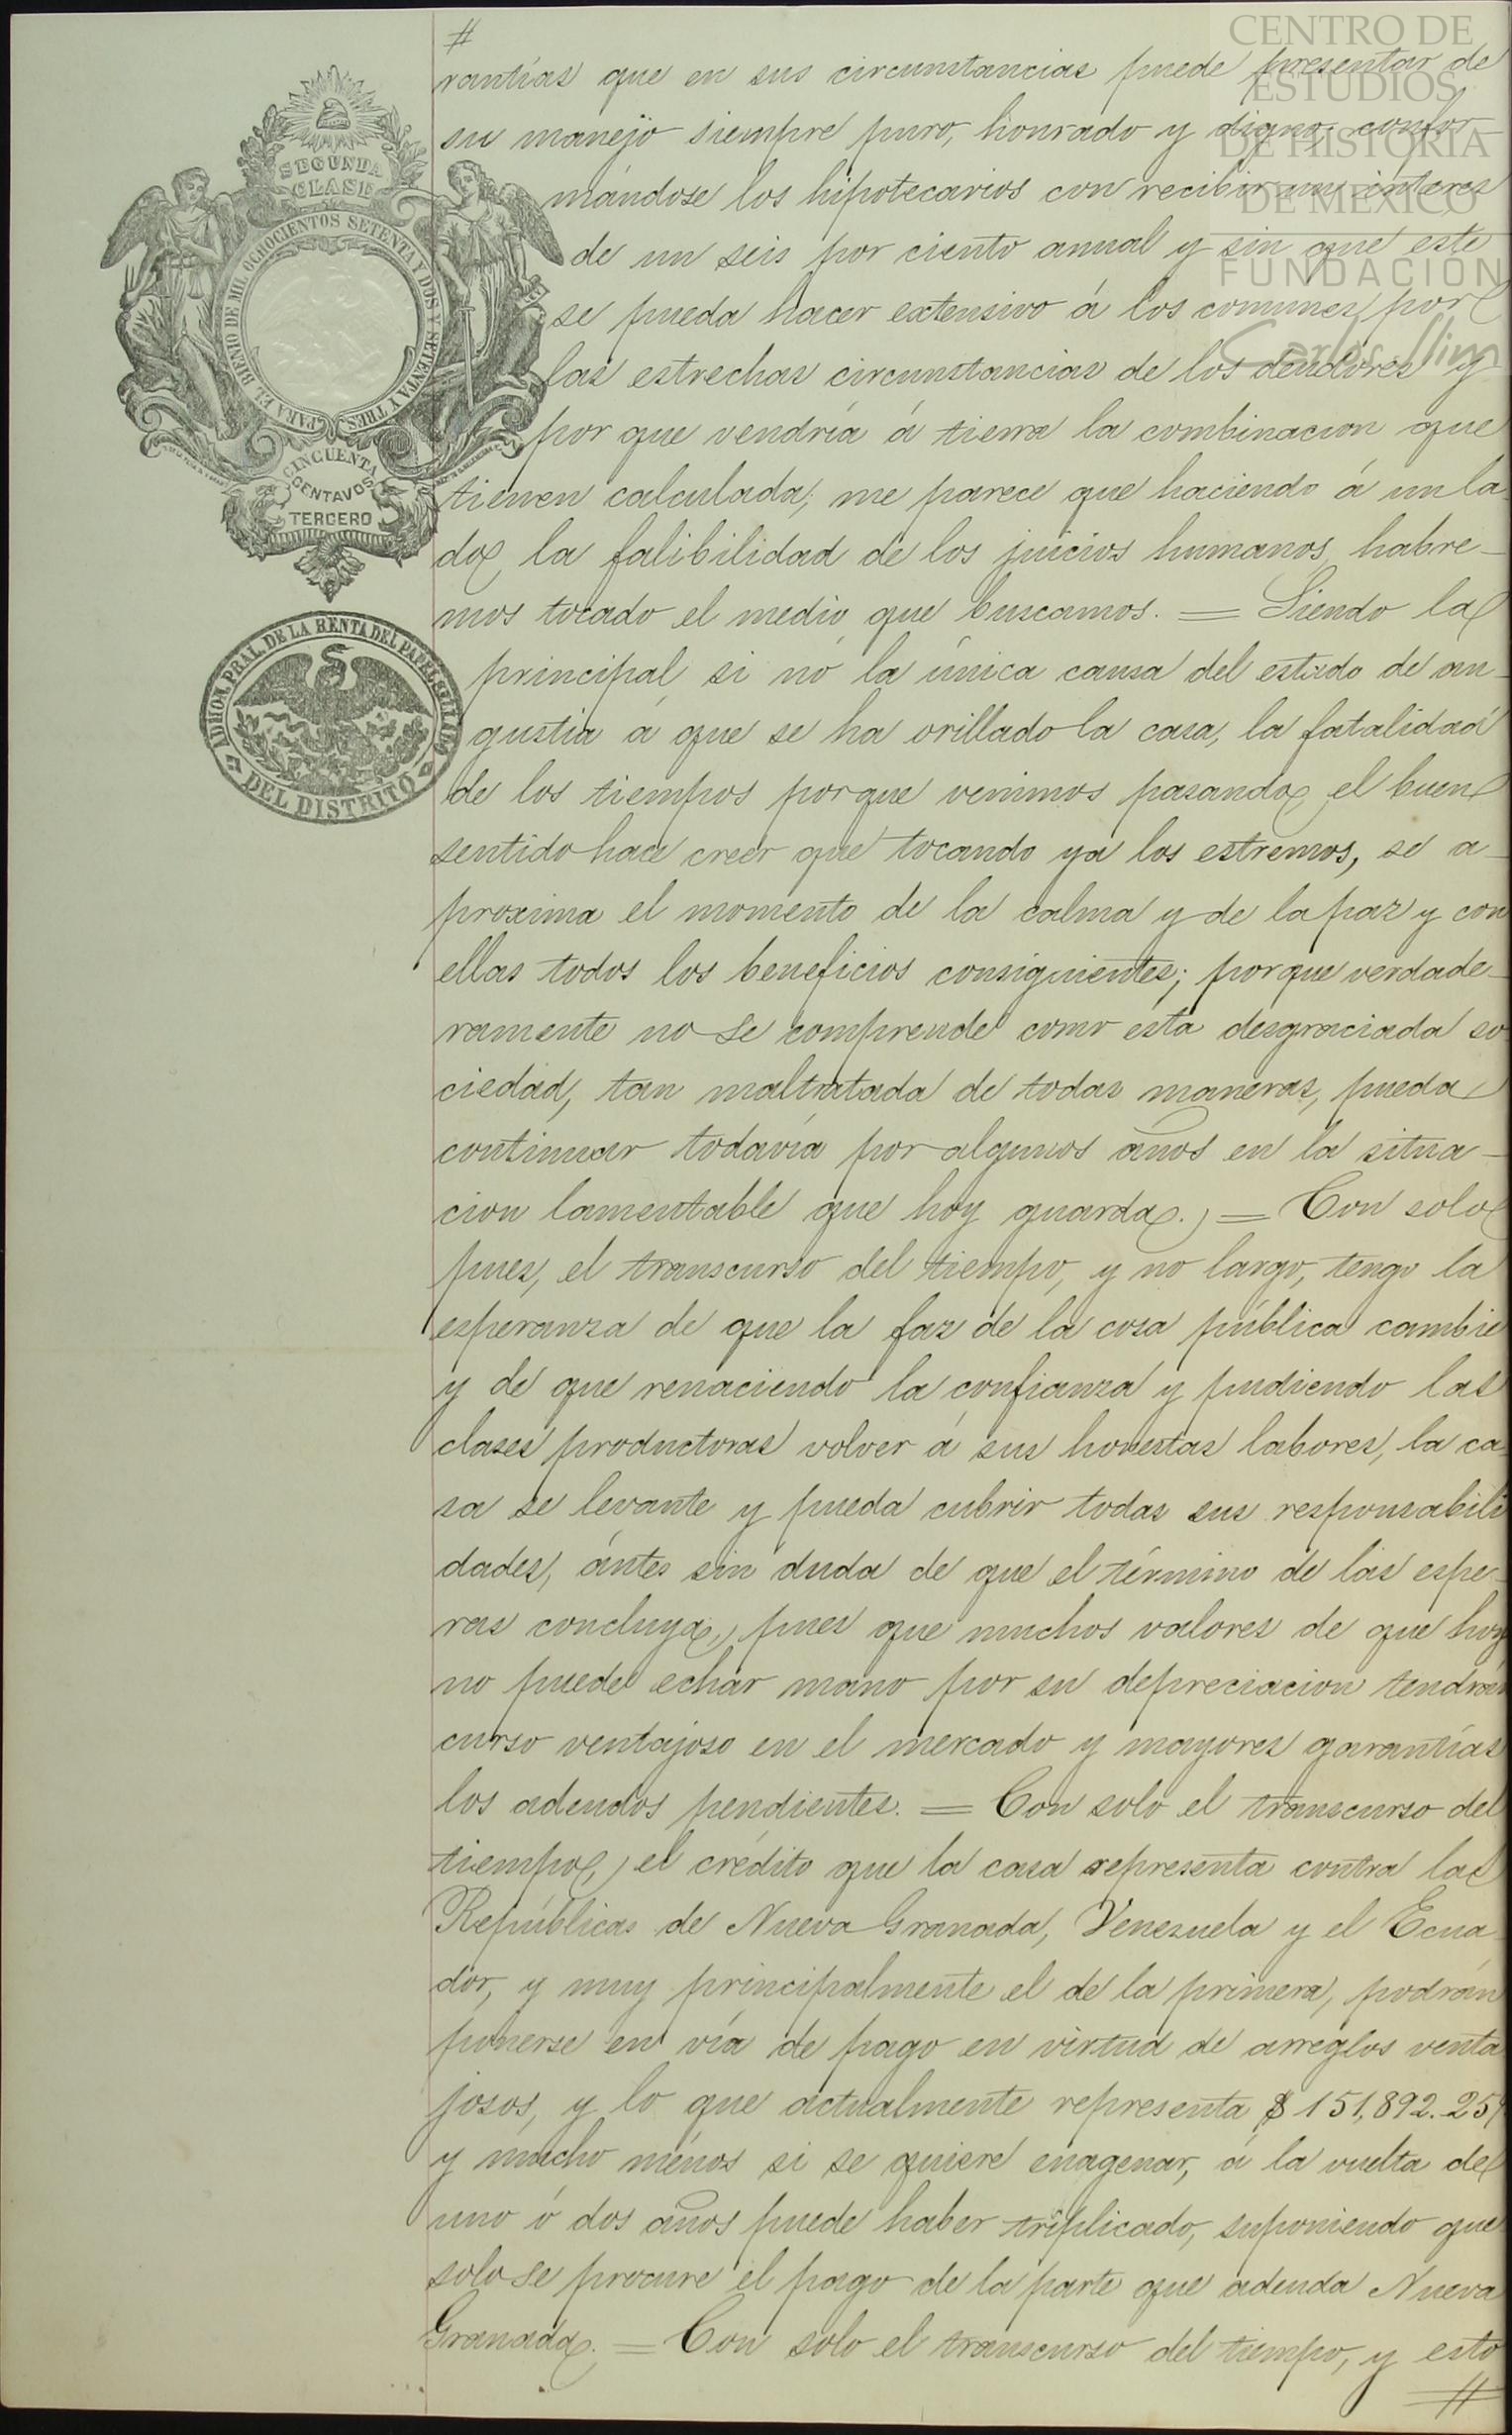 CENTRO DE
ESTUDIOS
DE HISTORIA
DE MÉXICO
FUNDACIÓN
Carlos Slim
SEGUNDA
CLASE
PARA EL BIENIO DE MIL OCHOCIENTOS SETENTA Y DOS Y SETENTA Y TRES
CINCUENTA
CENTAVOS
TERCERO
ADMON. PRAL. DE LA RENTA DEL PAPEL SELLADO
DEL DISTRITO
#
rantías que en sus circunstancias puede presentar de
su manejo siempre puro, honrado y digno; confor-
mándose los hipotecarios con recibir un interes
de un seis por ciento anual y sin que este
se pueda hacer extensivo á los comunes por
las estrechas circunstancias de los deudores y
por que vendría á tierra la combinacion que
tienen calculada; me parece que haciendo á un la
do, la falibilidad de los juicios humanos, habre-
mos tocado el medio que buscamos. = Siendo la
principal, si nó la única causa del estado de an-
gustia á que se ha orillado la casa, la fatalidad
de los tiempos porque venimos pasando, el buen
sentido hace creer que tocando ya los estremos, se a-
proxima el momento de la calma y de la paz y con
ellas todos los beneficios consiguientes; porque verdade-
ramente no se comprende como esta desgraciada so
ciedad, tan maltratada de todas maneras, pueda
continuar todavía por algunos años en la situa-
cion lamentable que hoy guarda. = Con solo
pues, el transcurso del tiempo, y no largo, tengo la
esperanza de que la faz de la cosa pública cambie
y de que renaciendo la confianza y pudiendo las
clases productoras volver á sus honestas labores, la ca
sa se levante y pueda cubrir todas sus responsabili
dades, ántes sin duda de que el término de las espe-
ras concluya, pues que muchos valores de que hoy
no puede echar mano por su depreciacion tendrán
curso ventajoso en el mercado y mayores garantías
los adeudos pendientes. = Con solo el transcurso del
tiempo, el crédito que la casa representa contra las
Repúblicas de Nueva Granada, Venezuela y el Ecua
dor, y muy principalmente el de la primera, podrán
ponerse en vía de pago en virtud de arreglos venta
josos, y lo que actualmente representa $ 151,892.25
y mucho ménos si se quiere enagenar, á la vuelta de
uno ó dos años puede haber triplicado, suponiendo que
solo se procure el pago de la parte que adeuda Nueva
Granada. = Con solo el transcurso del tiempo, y esto
#